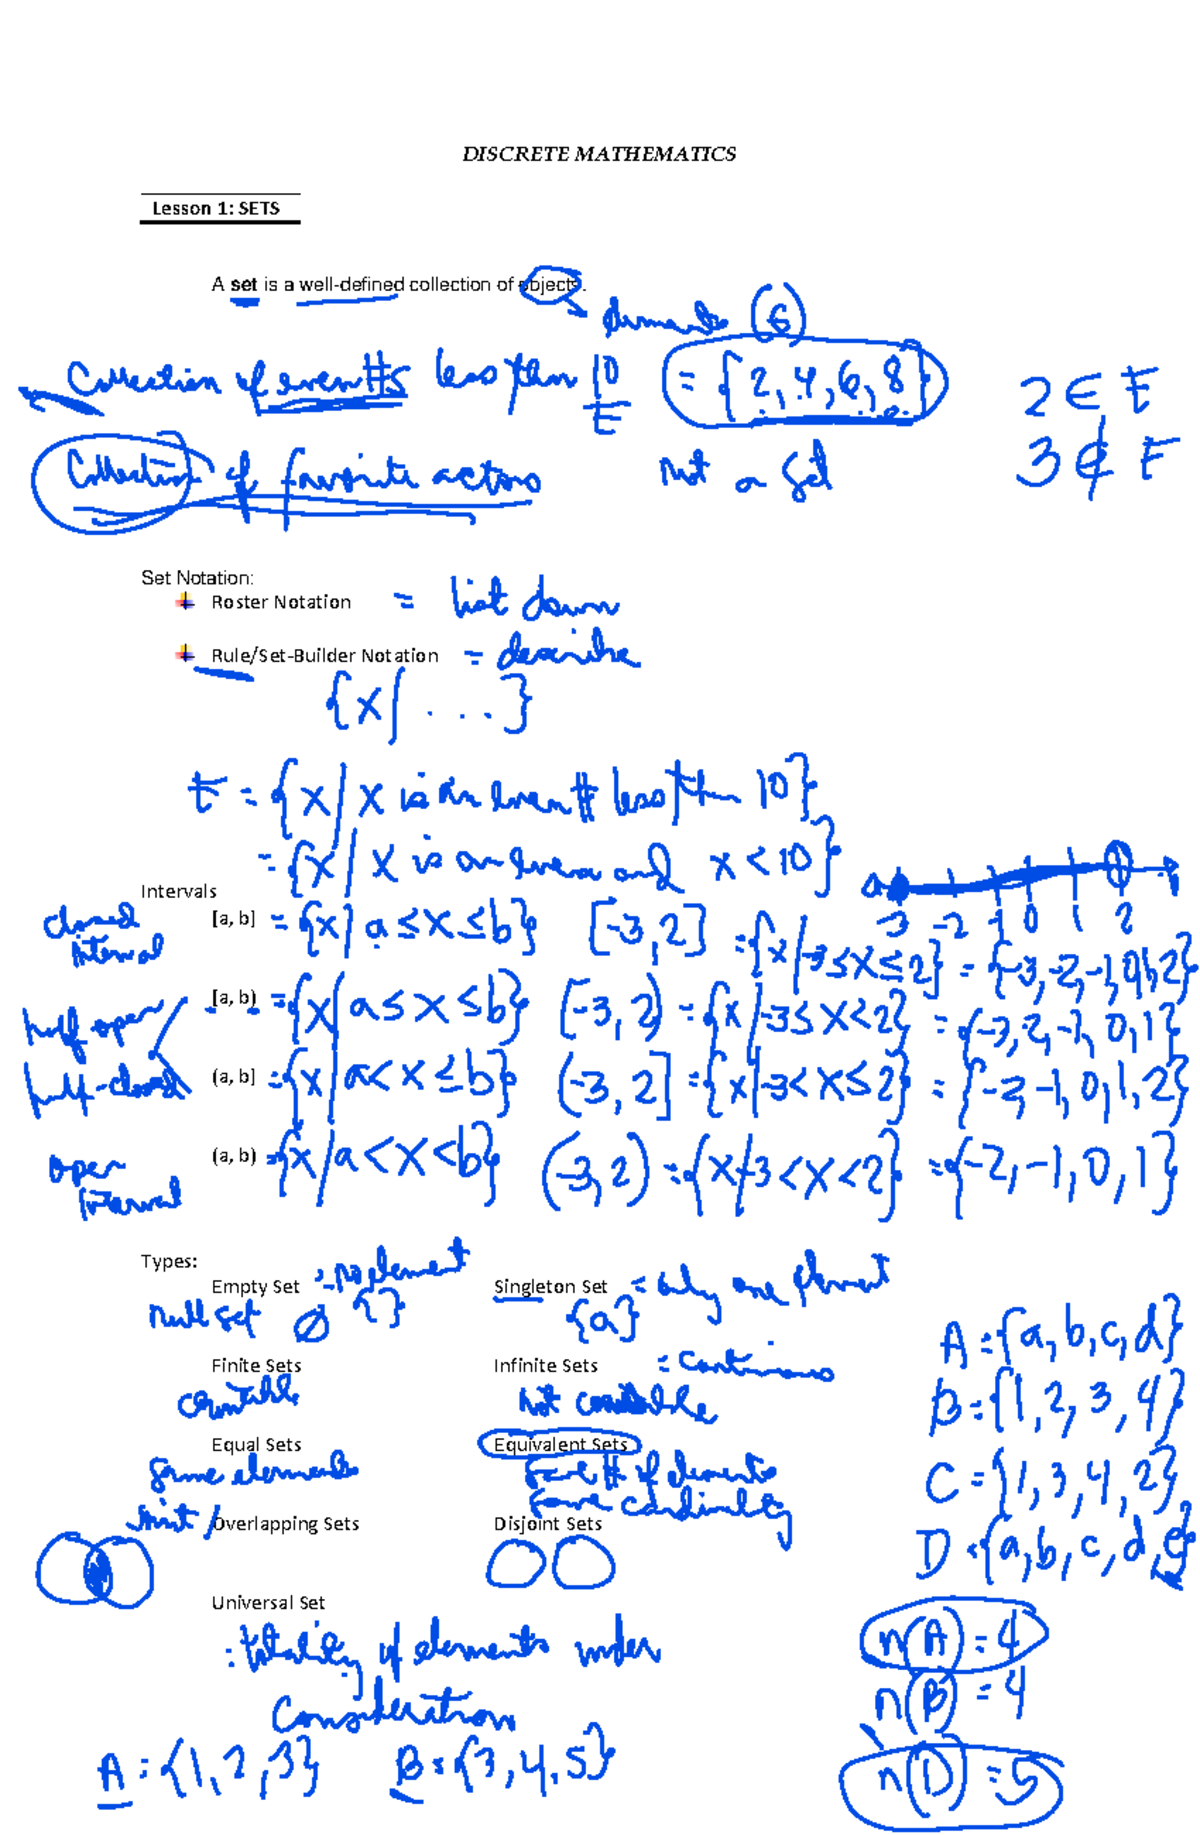 DISCRETE MATHEMATICS
Lesson 1: SETS
A set is a well-defined collection of objects.
elements 6
Collection of even #s less than 10 = {2, 4, 6, 8} 2 ∈ E
E
Collection of favorite actors not a set 3 ∉ E
Set Notation:
Roster Notation = list down
Rule/Set-Builder Notation = describe
{x| . . . }
E = {x| x is an even # less than 10}
= {x| x is an even and x < 10}
-3 -2 -1 0 1 2
Intervals
closed interval [a, b] = {x| a ≤ x ≤ b} [-3, 2] = {x|-3 ≤ x ≤ 2} = {-3, -2, -1, 0, 1, 2}
half open / [a, b) = {x| a ≤ x ≤ b} (-3, 2) = {x|-3 ≤ x < 2} = {-3, -2, -1, 0, 1}
half-closed (a, b] = {x| a < x ≤ b} (-3, 2] = {x|-3 < x ≤ 2} = {-2, -1, 0, 1, 2}
open interval (a, b) = {x| a < x < b} (-3, 2) = {x|-3 < x < 2} = {-2, -1, 0, 1}
Types:
Empty Set = no element Singleton Set = only one element
null set ∅ { } {a}
A = {a, b, c, d}
Finite Sets Infinite Sets = continuous
countable not countable
B = {1, 2, 3, 4}
Equal Sets Equivalent Sets
same elements same # of elements
same cardinality
C = {1, 3, 4, 2}
joint / Overlapping Sets Disjoint Sets
D = {a, b, c, d, e}
Universal Set
: totality of elements under
consideration
n(A) = 4
n(B) = 4
A = {1, 2, 3} B = {3, 4, 5}
n(D) = 5